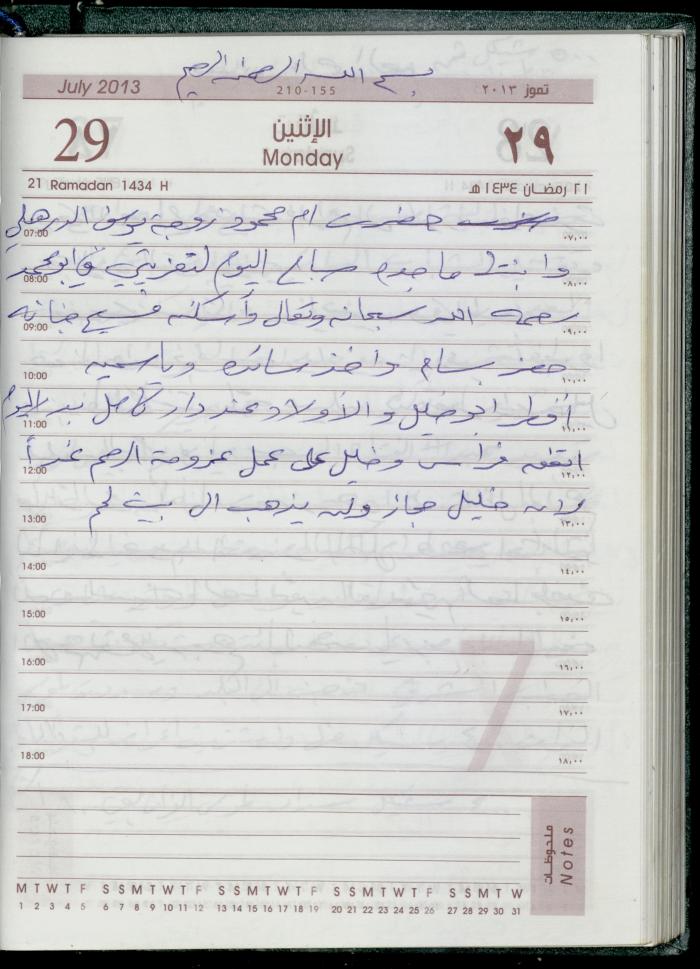 بسم الله الرحمن الرحيم
July 2013
210-155
تموز ٢٠١٣
29
الإثنين
Monday
٢٩
21 Ramadan 1434 H
٢١ رمضان ١٤٣٤ هـ
حضرت ام محمود زوجة يوسف الدرهلي
07:00
٠٧,٠٠
وابنتها ماجده صباح اليوم لتعزيتي في ابو محمد
08:00
٠٨,٠٠
رحمه الله سبحانه وتعالى وأسكنه فسيح جناته
09:00
٠٩,٠٠
حضر بسام واخذ سائده وياسمين
10:00
١٠,٠٠
أفطر ابو خليل والأولاد عند دار كامل اليوم
11:00
١١,٠٠
اتفق فراس وخليل على عمل عزومة الرحم غداً
12:00
١٢,٠٠
لانه خليل مجاز ولن يذهب الى بيت لحم
13:00
١٣,٠٠
14:00
١٤,٠٠
15:00
١٥,٠٠
16:00
١٦,٠٠
17:00
١٧,٠٠
18:00
١٨,٠٠
7
ملحوظات
Notes
M T W T F S S M T W T F S S M T W T F S S M T W T F S S M T W
1 2 3 4 5 6 7 8 9 10 11 12 13 14 15 16 17 18 19 20 21 22 23 24 25 26 27 28 29 30 31